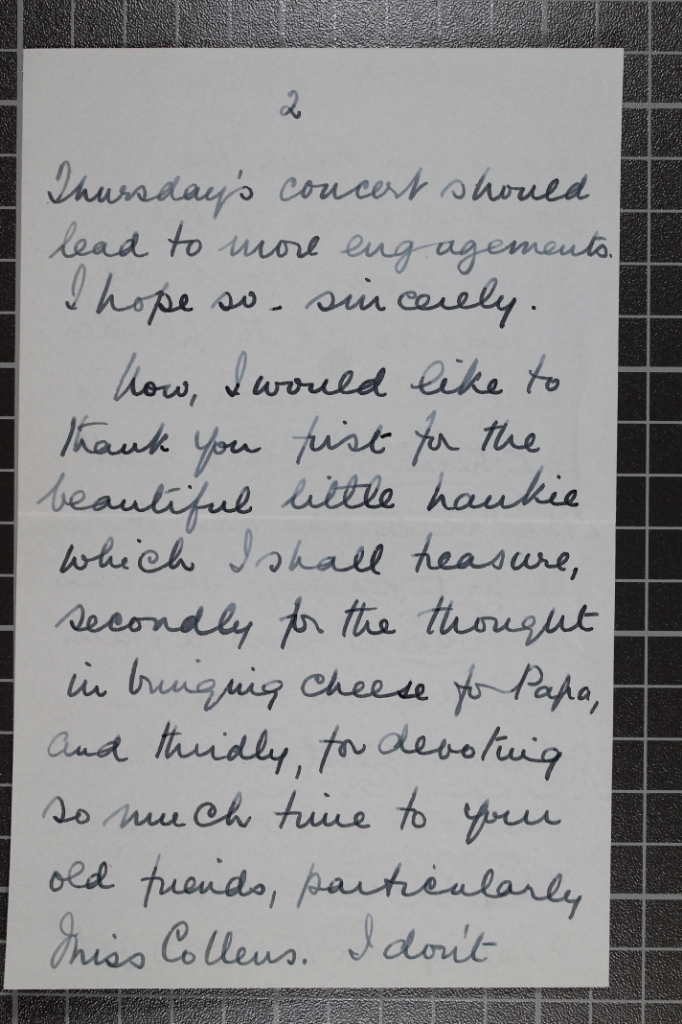 2
Thursday's concert should
lead to more engagements.
I hope so - sincerely.
Now, I would like to
thank you first for the
beautiful little hankie
which I shall treasure,
secondly for the thought
in bringing cheese for Papa,
and thirdly, for devoting
so much time to your
old friends, particularly
Miss Collens. I don't